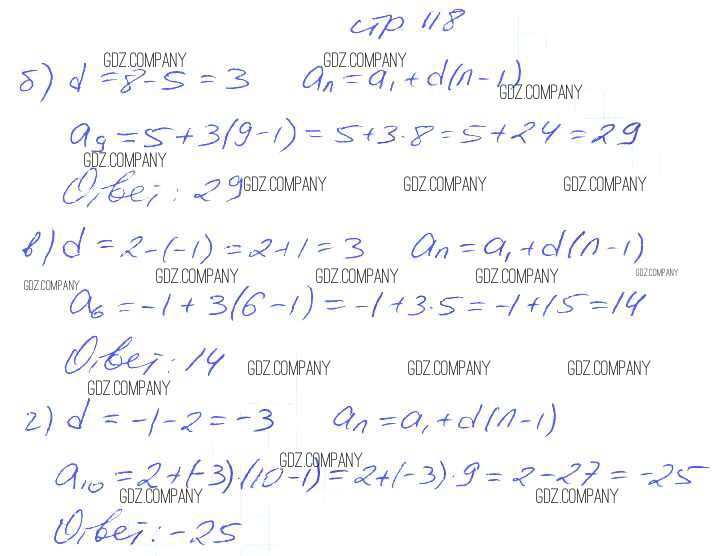 стр 118
GDZ.COMPANY GDZ.COMPANY
б) d = 8 - 5 = 3 aₙ = a₁ + d(n - 1)
GDZ.COMPANY
a₉ = 5 + 3(9 - 1) = 5 + 3·8 = 5 + 24 = 29
GDZ.COMPANY
Ответ: 29 GDZ.COMPANY GDZ.COMPANY GDZ.COMPANY
в) d = 2 - (-1) = 2 + 1 = 3 aₙ = a₁ + d(n - 1)
GDZ.COMPANY GDZ.COMPANY GDZ.COMPANY GDZ.COMPANY GDZ.COMPANY
a₆ = -1 + 3(6 - 1) = -1 + 3·5 = -1 + 15 = 14
Ответ: 14 GDZ.COMPANY GDZ.COMPANY GDZ.COMPANY
GDZ.COMPANY
г) d = -1 - 2 = -3 aₙ = a₁ + d(n - 1)
GDZ.COMPANY
a₁₀ = 2 + (-3)·(10 - 1) = 2 + (-3)·9 = 2 - 27 = -25
GDZ.COMPANY GDZ.COMPANY
Ответ: -25